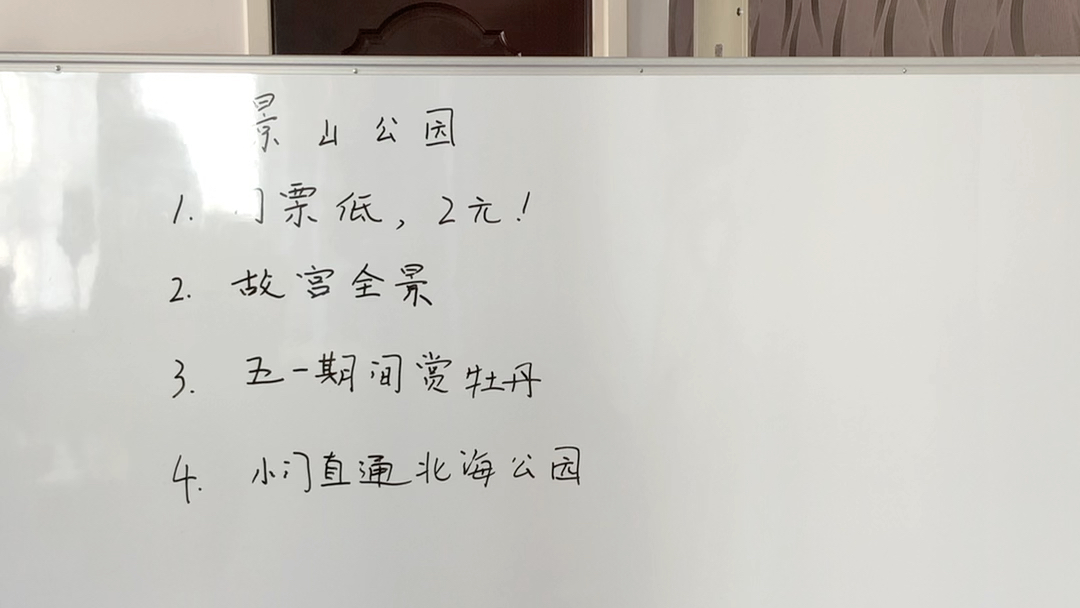 景山公园
1. 门票低，2元！
2. 故宫全景
3. 五一期间赏牡丹
4. 小门直通北海公园